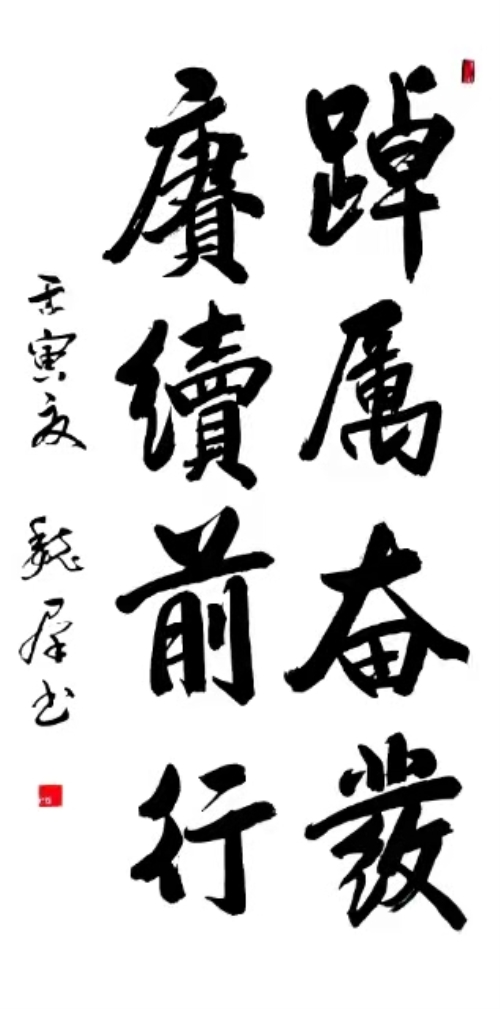 踔厲奋發
賡續前行
壬寅夏 魏羣书